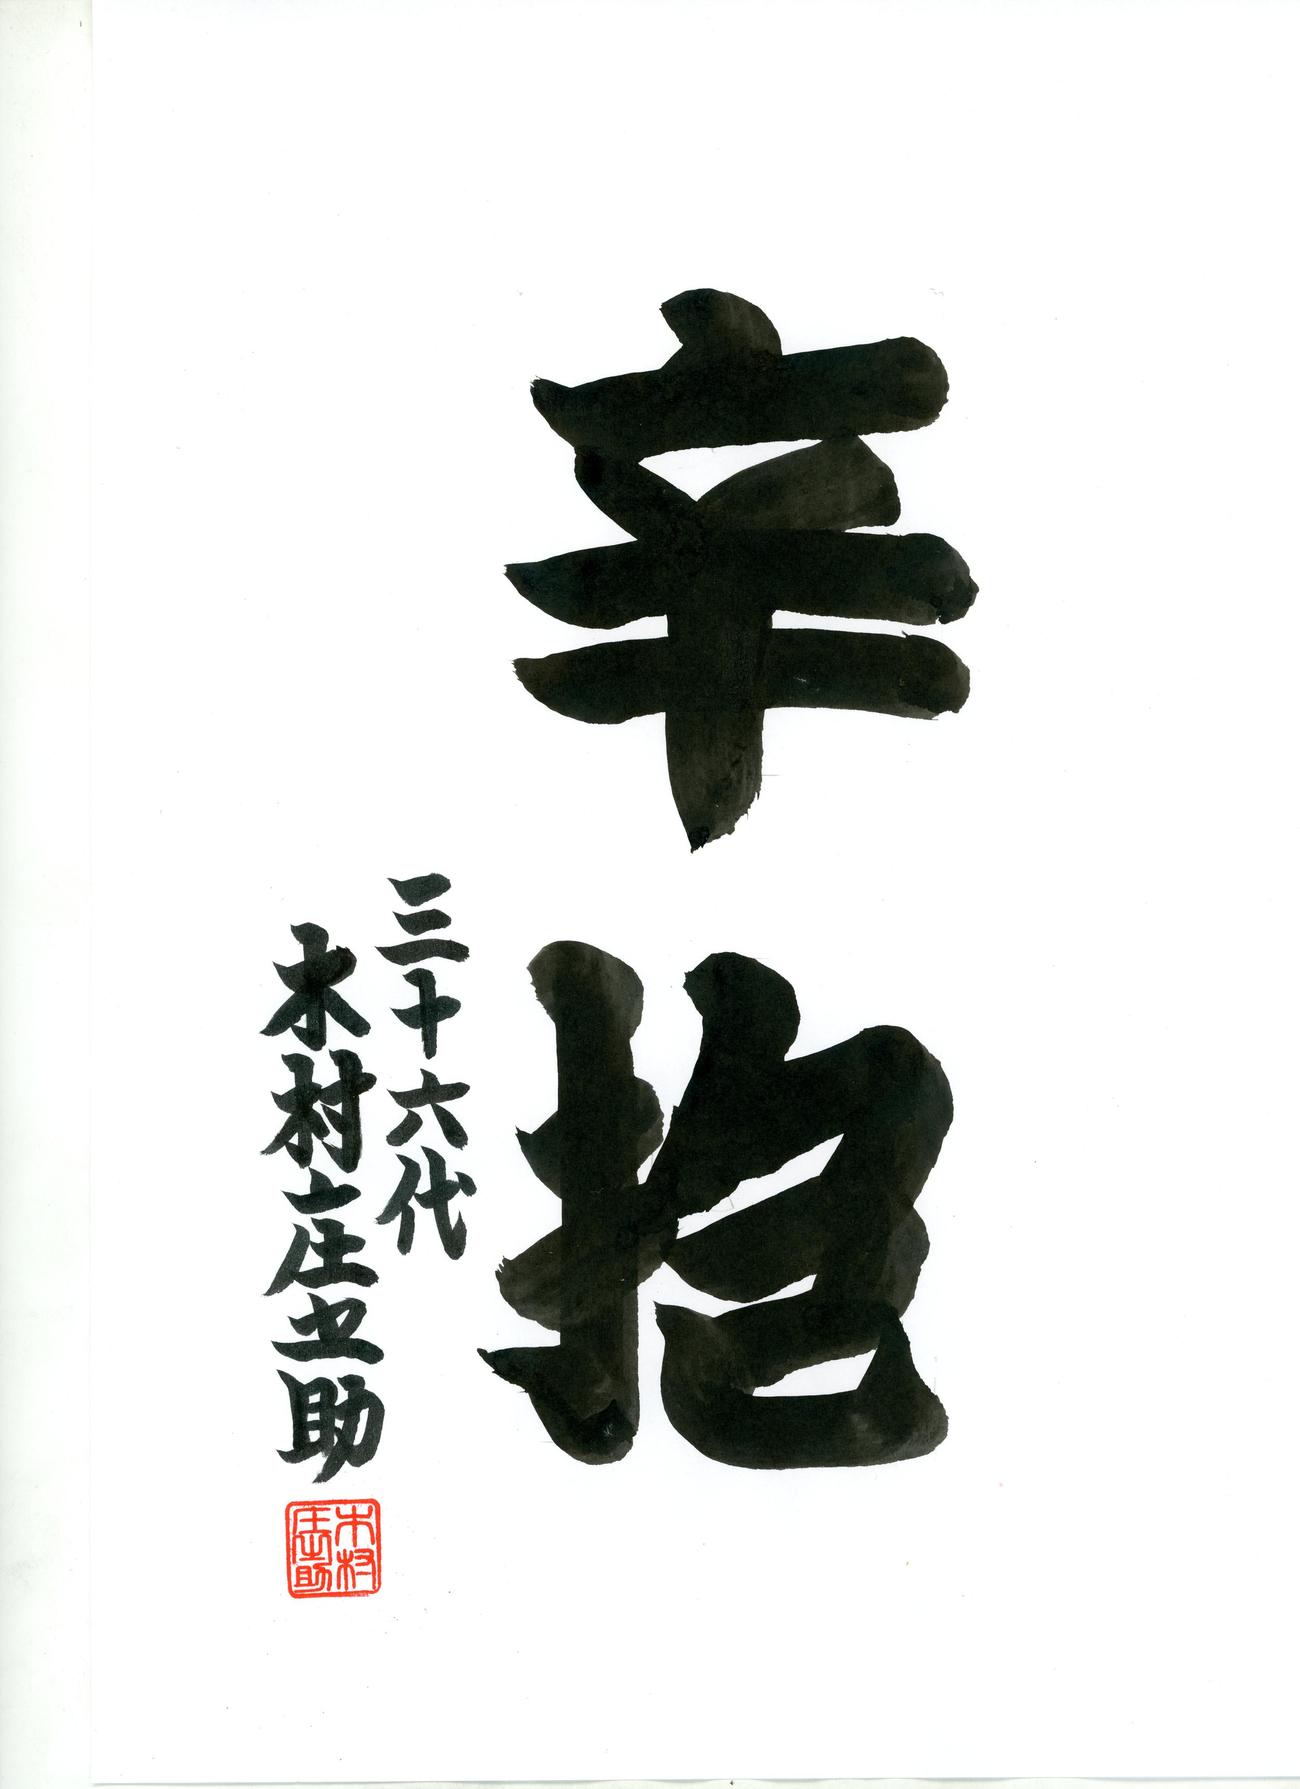 辛抱
三十六代
木村庄之助
木村
庄之助